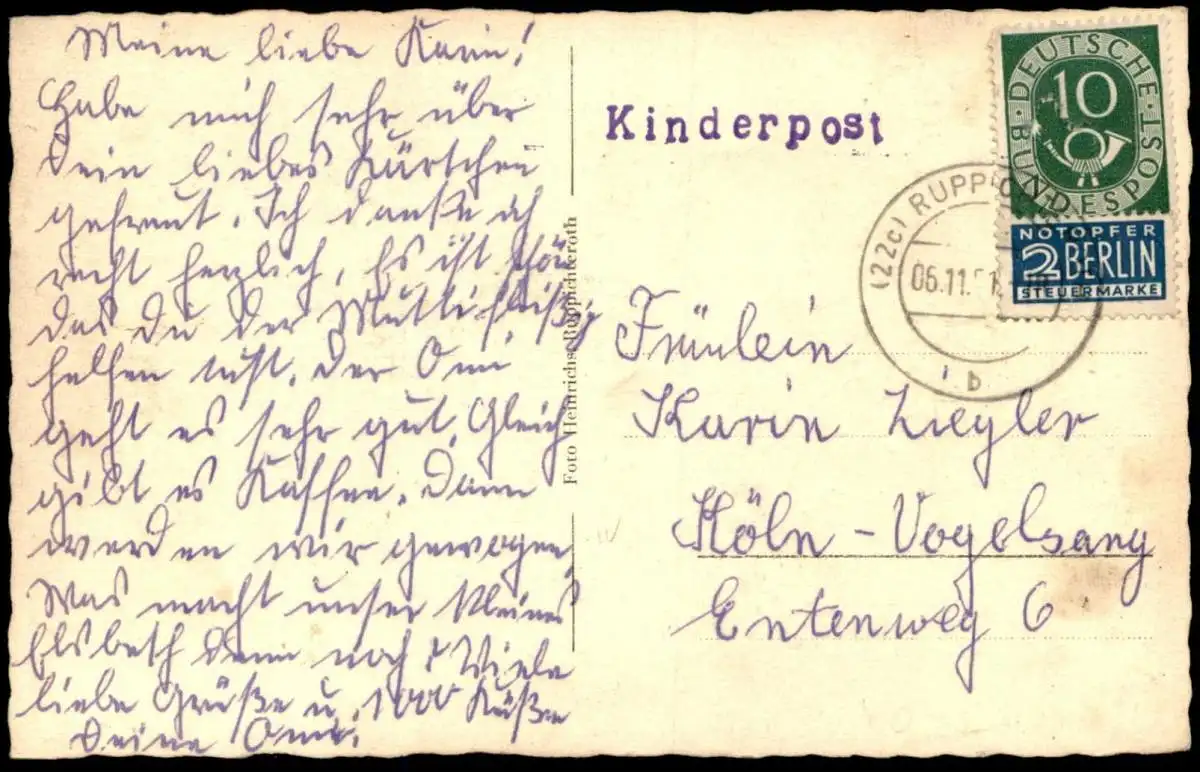 Meine liebe Karin!
Habe mich sehr über
Dein liebes Kärtchen
gefreut. Ich danke dir
recht herzlich, Es ist schön
das du der Mutti fleißig
helfen tust. Der Omi
geht es sehr gut, Gleich
gibt es Kaffee. Dann
werden wir gewogen,
Was macht unser kleines
Elsbeth denn noch? Viele
liebe Grüße u. 1000 Küße
Deine Omi.
Foto Heinrichs, Ruppichteroth
Kinderpost
DEUTSCHE BUNDESPOST
10
NOTOPFER
2 BERLIN
STEUERMARKE
(22c) RUPPIC
06.11.51
b
Fräulein
Karin Ziegler
Köln-Vogelsang
Entenweg 6